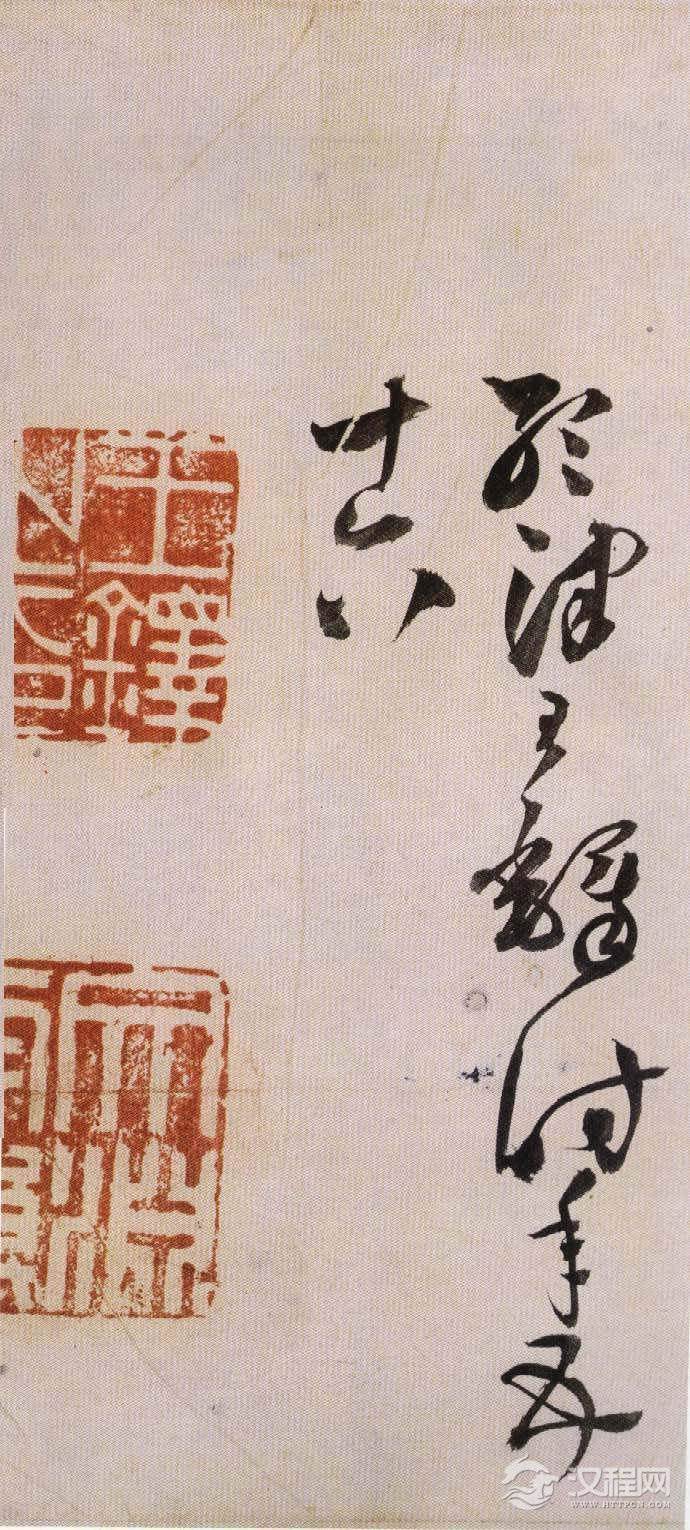 孟津王鐸時年五
十六
王鐸之印
汉程网
WWW.HTTPCN.COM